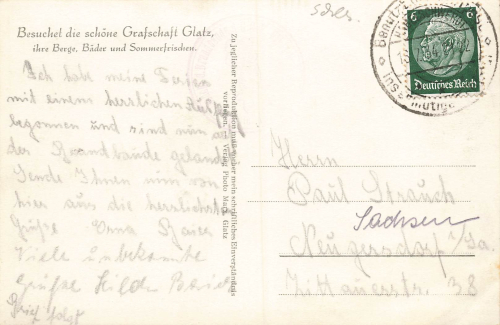 Besuchet die schöne Grafschaft Glatz,
ihre Berge, Bäder und Sommerfrischen.
Ich habe meine Ferien
mit einem herrlichen
begonnen und sind nun an
der Brandbaude gelandet
Sende Ihnen nun von
hier aus die herrlichsten
Grüße Erna
Viele unbekannte
Grüße Hilde
Brief folgt
Zu jeglicher Reproduktion muß vorher mein schriftliches Einverständnis
vorliegen. Verlag Photo Marx, Glatz
Schles.
6 6
Deutsches Reich
Herrn
Paul Strauch
Sachsen
Neugersdorf/Sa
Zittauerstr. 38